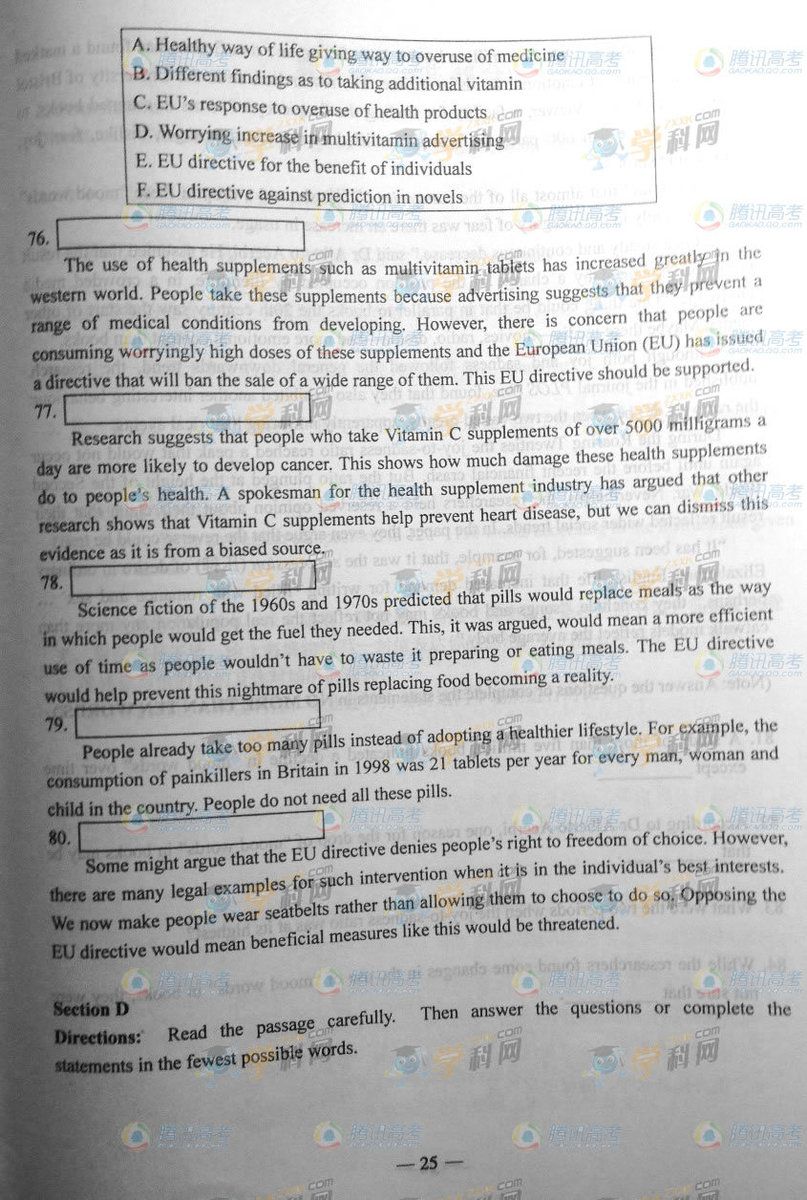 A. Healthy way of life giving way to overuse of medicine
B. Different findings as to taking additional vitamin
C. EU's response to overuse of health products
D. Worrying increase in multivitamin advertising
E. EU directive for the benefit of individuals
F. EU directive against prediction in novels
76.
The use of health supplements such as multivitamin tablets has increased greatly in the
western world. People take these supplements because advertising suggests that they prevent a
range of medical conditions from developing. However, there is concern that people are
consuming worryingly high doses of these supplements and the European Union (EU) has issued
a directive that will ban the sale of a wide range of them. This EU directive should be supported.
77.
Research suggests that people who take Vitamin C supplements of over 5000 milligrams a
day are more likely to develop cancer. This shows how much damage these health supplements
do to people's health. A spokesman for the health supplement industry has argued that other
research shows that Vitamin C supplements help prevent heart disease, but we can dismiss this
evidence as it is from a biased source.
78.
Science fiction of the 1960s and 1970s predicted that pills would replace meals as the way
in which people would get the fuel they needed. This, it was argued, would mean a more efficient
use of time as people wouldn't have to waste it preparing or eating meals. The EU directive
would help prevent this nightmare of pills replacing food becoming a reality.
79.
People already take too many pills instead of adopting a healthier lifestyle. For example, the
consumption of painkillers in Britain in 1998 was 21 tablets per year for every man, woman and
child in the country. People do not need all these pills.
80.
Some might argue that the EU directive denies people's right to freedom of choice. However,
there are many legal examples for such intervention when it is in the individual's best interests.
We now make people wear seatbelts rather than allowing them to choose to do so. Opposing the
EU directive would mean beneficial measures like this would be threatened.
Section D
Directions: Read the passage carefully. Then answer the questions or complete the
statements in the fewest possible words.
— 25 —